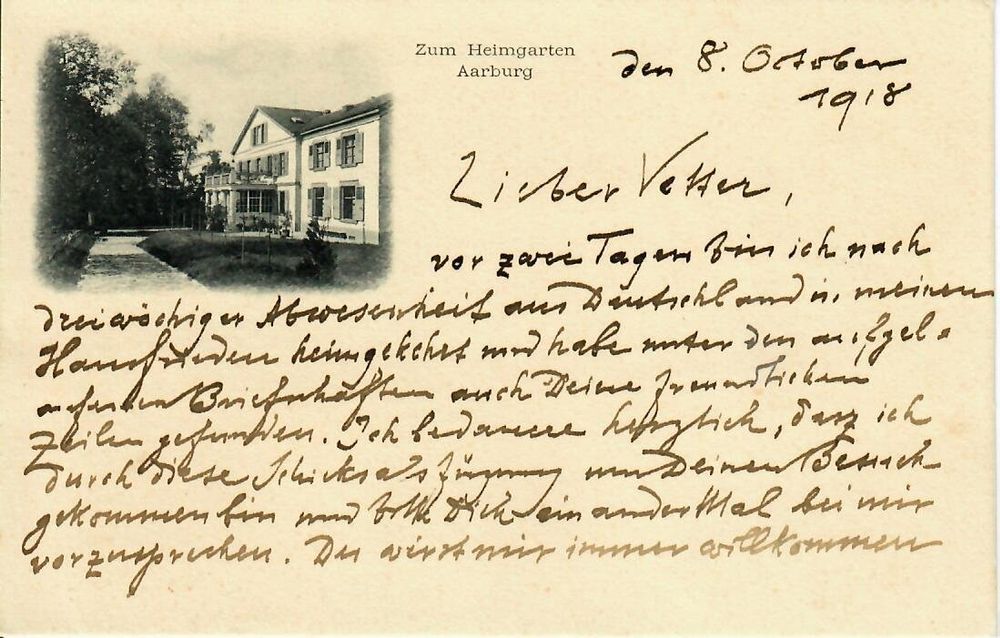 Zum Heimgarten
Aarburg
den 8. October
1918
Lieber Vetter,
vor zwei Tagen bin ich nach
dreiwöchiger Abwesenheit aus Deutschland in meinen
Hausfrieden heimgekehrt und habe unter den aufgel-
aufenen Briefschaften auch Deine freundlichen
Zeilen gefunden. Ich bedauere herzlich, dasz ich
durch diese Schicksalsfügung um Deinen Besuch
gekommen bin und bitte Dich ein ander Mal bei mir
vorzusprechen. Du wirst mir immer willkommen